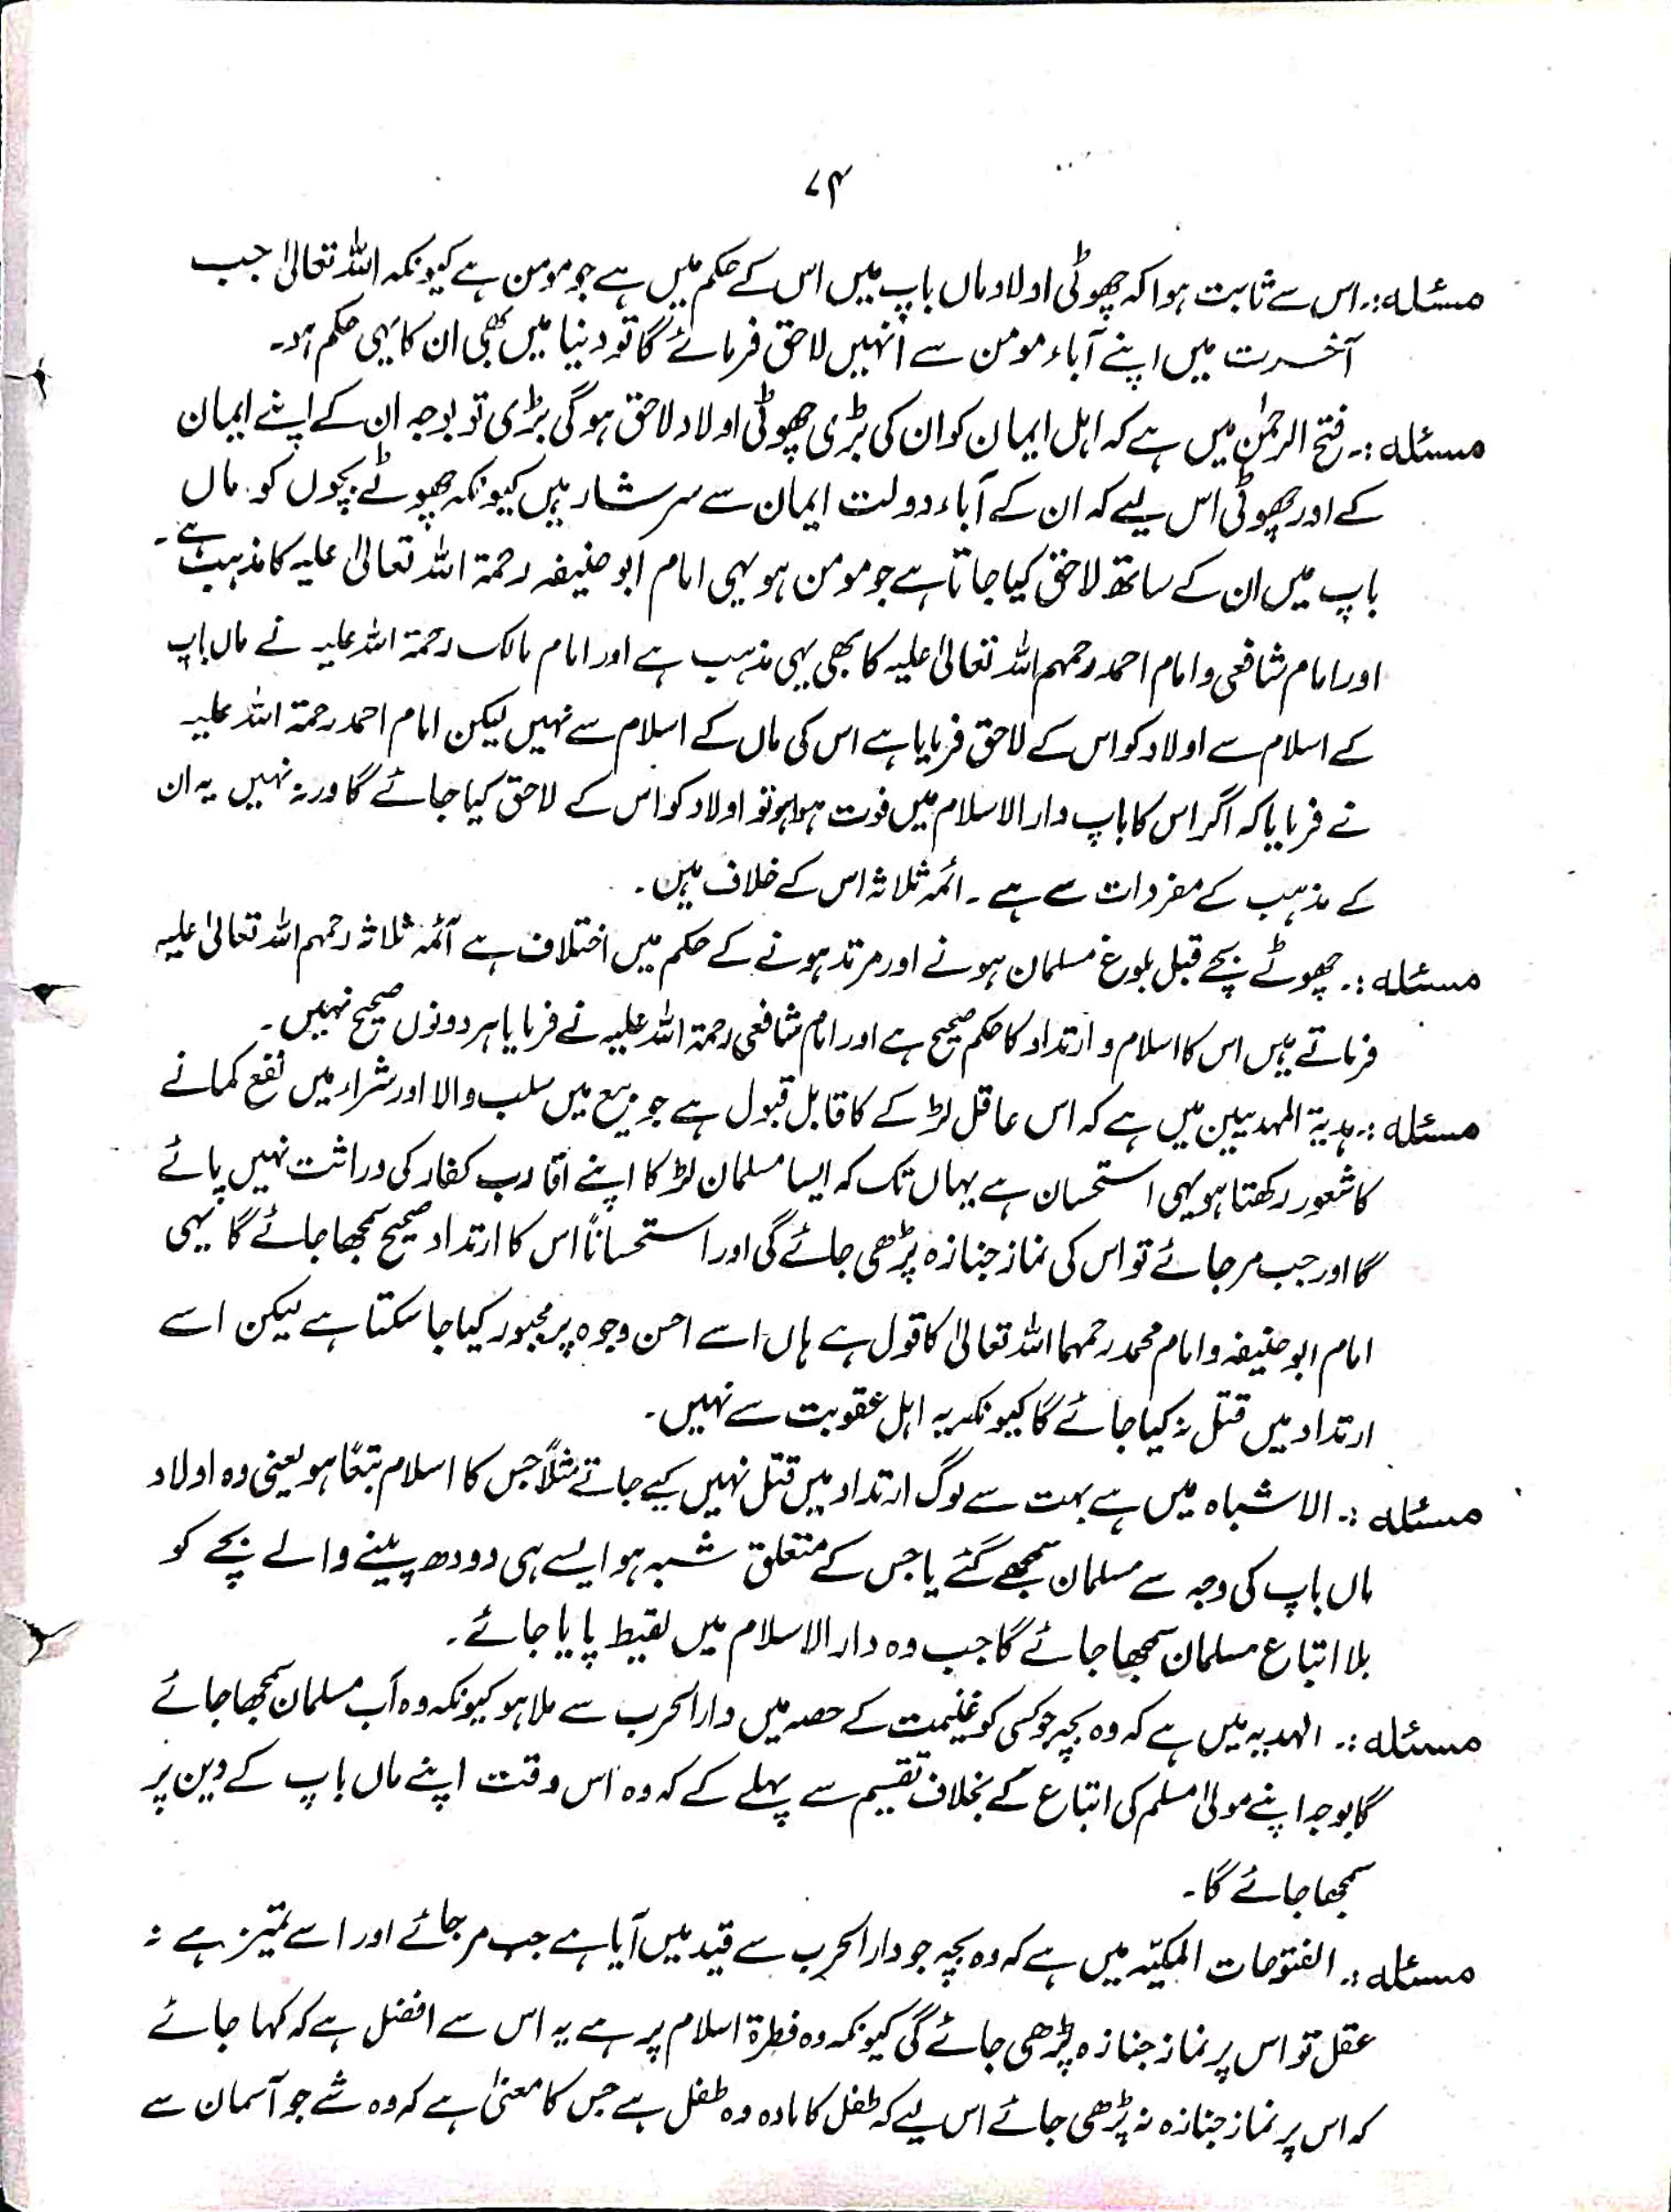 ۷۴
مسئلہ :۔ اس سے ثابت ہوا کہ چھوٹی اولاد ماں باپ میں اس کے حکم میں ہے جو مومن ہے کیونکہ اللہ تعالیٰ جب
آخرت میں اپنے آباء مومن سے انہیں لاحق فرمائے گا تو دنیا میں بھی ان کا یہی حکم ہو۔
مسئلہ :۔ فتح الرحمٰن میں ہے کہ اہل ایمان کو ان کی بڑی چھوٹی اولاد لاحق ہوگی بڑی تو بوجہ ان کے اپنے ایمان
کے اور چھوٹی اس لیے کہ ان کے آباء دولت ایمان سے سرشار ہیں کیونکہ چھوٹے بچوں کو ماں
باپ میں ان کے ساتھ لاحق کیا جاتا ہے جو مومن ہو یہی امام ابو حنیفہ رحمۃ اللہ تعالیٰ علیہ کا مذہب ہے۔
اور امام شافعی و امام احمد رحمہم اللہ تعالیٰ علیہ کا بھی یہی مذہب ہے اور امام مالک رحمۃ اللہ علیہ نے ماں باپ
کے اسلام سے اولاد کو اس کے لاحق فرمایا ہے اس کی ماں کے اسلام سے نہیں لیکن امام احمد رحمۃ اللہ علیہ
نے فرمایا کہ اگر اس کا باپ دار الاسلام میں فوت ہوا ہو تو اولاد کو اس کے لاحق کیا جائے گا ورنہ نہیں یہ ان
کے مذہب کے مفردات سے ہے ۔ ائمہ ثلاثہ اس کے خلاف ہیں۔
مسئلہ :۔ چھوٹے بچے قبل بلوغ مسلمان ہونے اور مرتد ہونے کے حکم میں اختلاف ہے آئمہ ثلاثہ رحمہم اللہ تعالیٰ علیہ
فرماتے ہیں اس کا اسلام و ارتداد کا حکم صحیح ہے اور امام شافعی رحمۃ اللہ علیہ نے فرمایا ہر دونوں صحیح نہیں۔
مسئلہ :۔ ہدیۃ المہدیین میں ہے کہ اس عاقل لڑکے کا قابل قبول ہے جو بیع میں سلب والا اور شراء میں نفع کمانے
کا شعور رکھتا ہو یہی استحسان ہے یہاں تک کہ ایسا مسلمان لڑکا اپنے اقارب کفار کی وراثت نہیں پائے
گا اور جب مر جائے تو اس کی نماز جنازہ پڑھی جائے گی اور استحساناً اس کا ارتداد صحیح سمجھا جائے گا یہی
امام ابو حنیفہ و امام محمد رحمہما اللہ تعالیٰ کا قول ہے ہاں اسے احسن وجوہ پر مجبور کیا جا سکتا ہے لیکن اسے
ارتداد میں قتل نہ کیا جائے گا کیونکہ یہ اہل عقوبت سے نہیں۔
مسئلہ :۔ الاشباہ میں ہے بہت سے لوگ ارتداد میں قتل نہیں کیے جاتے مثلاً جس کا اسلام تبعًا ہو یعنی وہ اولاد
ماں باپ کی وجہ سے مسلمان سمجھے گئے یا جس کے متعلق شبہ ہو ایسے ہی دودھ پینے والے بچے کو
بلا اتباع مسلمان سمجھا جائے گا جب وہ دار الاسلام میں لقیط پایا جائے۔
مسئلہ :۔ الہدیہ میں ہے کہ وہ بچہ جو کسی کو غنیمت کے حصہ میں دار الحرب سے ملا ہو کیونکہ وہ اَب مسلمان سمجھا جائے
گا بوجہ اپنے مولیٰ مسلم کی اتباع کے بخلاف تقسیم سے پہلے کے کہ وہ اس وقت اپنے ماں باپ کے دین پر
سمجھا جائے گا۔
مسئلہ :۔ الفتوحات المکیّہ میں ہے کہ وہ بچہ جو دار الحرب سے قید میں آیا ہے جب مر جائے اور اسے تمیز ہے نہ
عقل تو اس پر نماز جنازہ پڑھی جائے گی کیونکہ وہ فطرۃ اسلام پر ہے یہ اس سے افضل ہے کہ کہا جائے
کہ اس پر نماز جنازہ نہ پڑھی جائے اس لیے کہ طفل کا مادہ وہ طفل ہے جس کا معنیٰ ہے کہ وہ شے جو آسمان سے